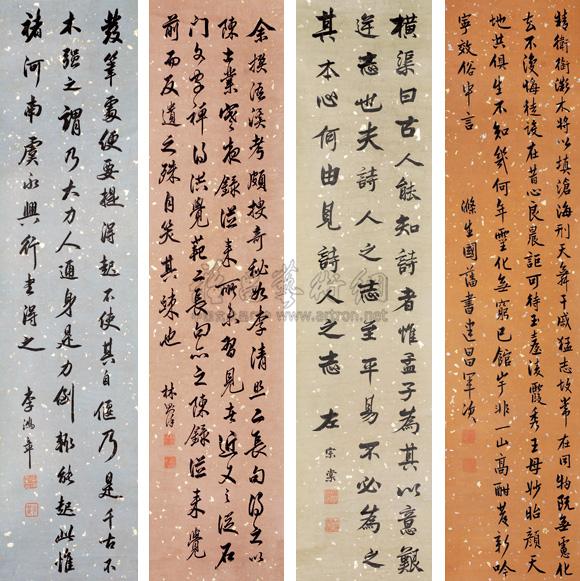 精衛銜微木將以填滄海刑天舞干戚猛志故常在同物既無慮化
去不復悔徒設在昔心良晨詎可待玉臺淩霞秀王母妙怡顏天
地共俱生不知幾何年靈化無窮已館宇非一山高酣發新吟
寧效俗中言 滌生國藩書建昌軍次
橫渠曰古人能知詩者惟孟子為其以意艱
逆志也夫詩人之志至平易不必為之
其本心何由見詩人之志 左宗棠
余撰浯溪考頗搜奇秘如李清照二長句得之以
陳士業寒夜錄從來所未習見近又之從石
門文字禪得洪覺範二長句亦之陳錄從來覺
前而反遺之殊自笑其疎也 林則徐
發筆處便要提得起不使其自偃乃是千古不
木强之謂乃大力人通身是力倒輒能起此惟
褚河南虞永興行書得之 李鴻章
www.artron.net